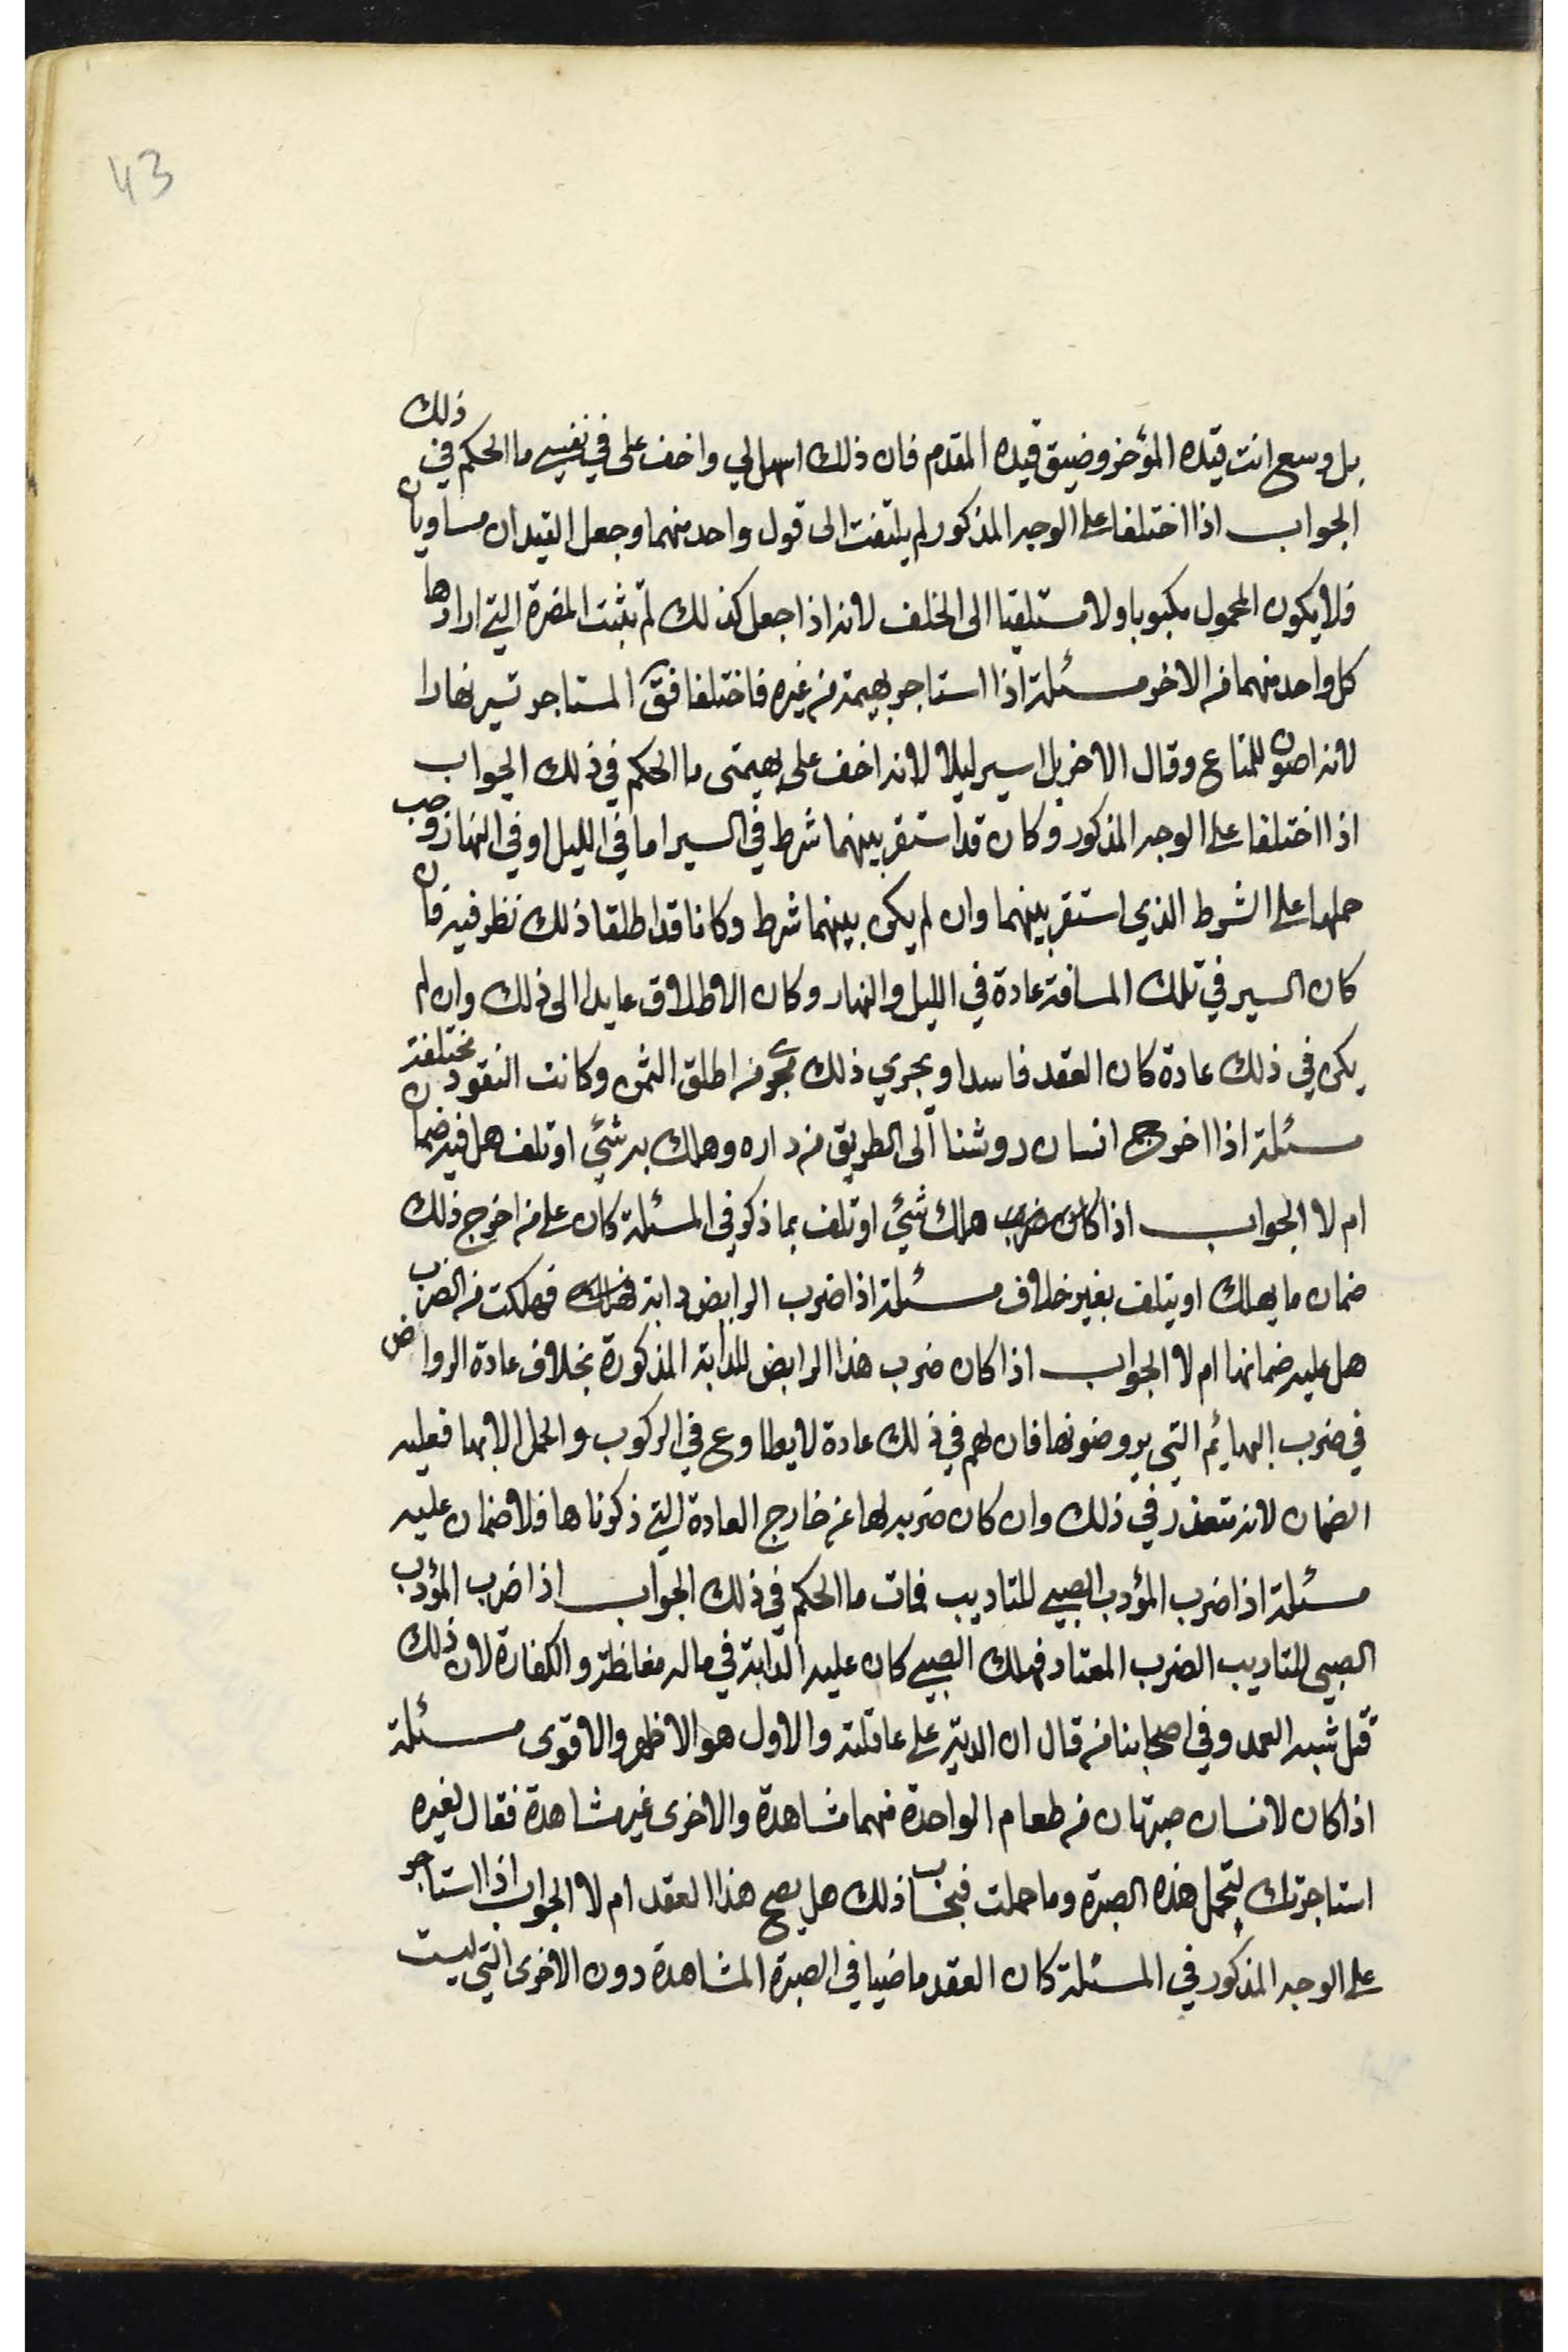 43
بل وسع انت قيده المؤخر وضيق قيده المقدم فان ذلك اسهل لي واخف على في نفسي ما الحكم في ذلك
الجواب اذا اختلفا على الوجه المذكور لم يلتفت الى قول واحد منهما وجعل القيدان مساويان
فلا يكون المحمول مكبوبا ولا مستلقيا الى الخلف لانه اذا جعل كذلك لم تثبت المضرة التي ارادها
كل واحد منهما من الاخر مسئلة اذا استاجر بهيمة من غيره فاختلفا فقَ المستاجر تسير نهارا
لانه اصون للمتاع وقال الاخر بل اسير ليلا لانه اخف على بهيمتى ما الحكم في ذلك الجواب
اذا اختلفا على الوجه المذكور وكان قد استقر بينهما شرط في السير اما في الليل او في النهار وجب
حملها على الشرط الذي استقر بينهما وان لم يكن بينهما شرط وكانا قد اطلقا ذلك نظر فيه فان
كان السير في تلك المسافة عادة في الليل والنهار وكان الاطلاق عايدا الى ذلك وان لم
يكن في ذلك عادة كان العقد فاسدا ويجري ذلك مجرى من اطلق الثمن وكانت النقود مختلفة
مسئلة اذا اخرج انسان روشنا الى الطريق من داره وهلك به شئي او تلف هل فيه ضمان
ام لا الجواب اذا كان ضرب هلك شئي او تلف بما ذكر في المسئلة كان على من اخرج ذلك
ضمان ما يهلك او يتلف بغير خلاف مسئلة اذا ضرب الرايض دابة فهلك فهلكت من الضرب
هل عليه ضمانها ام لا الجواب اذا كان ضرب هذا الرايض للدابة المذكورة بخلاف عادة الرواض
في ضرب البهائم التي يروضونها فان لهم في ذلك عادة لا يطاوع في الركوب والحمل الا بها فعليه
الضمان لانه متعذر في ذلك وان كان ضربه لها عن خارج العادة التي ذكرناها فلا ضمان عليه
مسئلة اذا ضرب المؤدب الصبي للتاديب فمات ما الحكم في ذلك الجواب اذا ضرب المؤدب
الصبي للتاديب الضرب المعتاد فهلك الصبي كان عليه الدابة في ماله مغلظة والكفارة لان ذلك
قتل شبه العمد وفي اصحابنا من قال ان الدية على عاقلته والاول هو الاظهر والاقوى مسئلة
اذا كان لانسان صبرتان من طعام الواحدة منهما مشاهدة والاخرى غير مشاهدة فقال لغيره
استاجرتك لتحمل هذه الصبرة وما حملت فبحساب ذلك هل يصح هذا العقد ام لا الجواب اذا استاجر
على الوجه المذكور في المسئلة كان العقد ماضيا في الصبرة المشاهدة دون الاخرى التي ليست